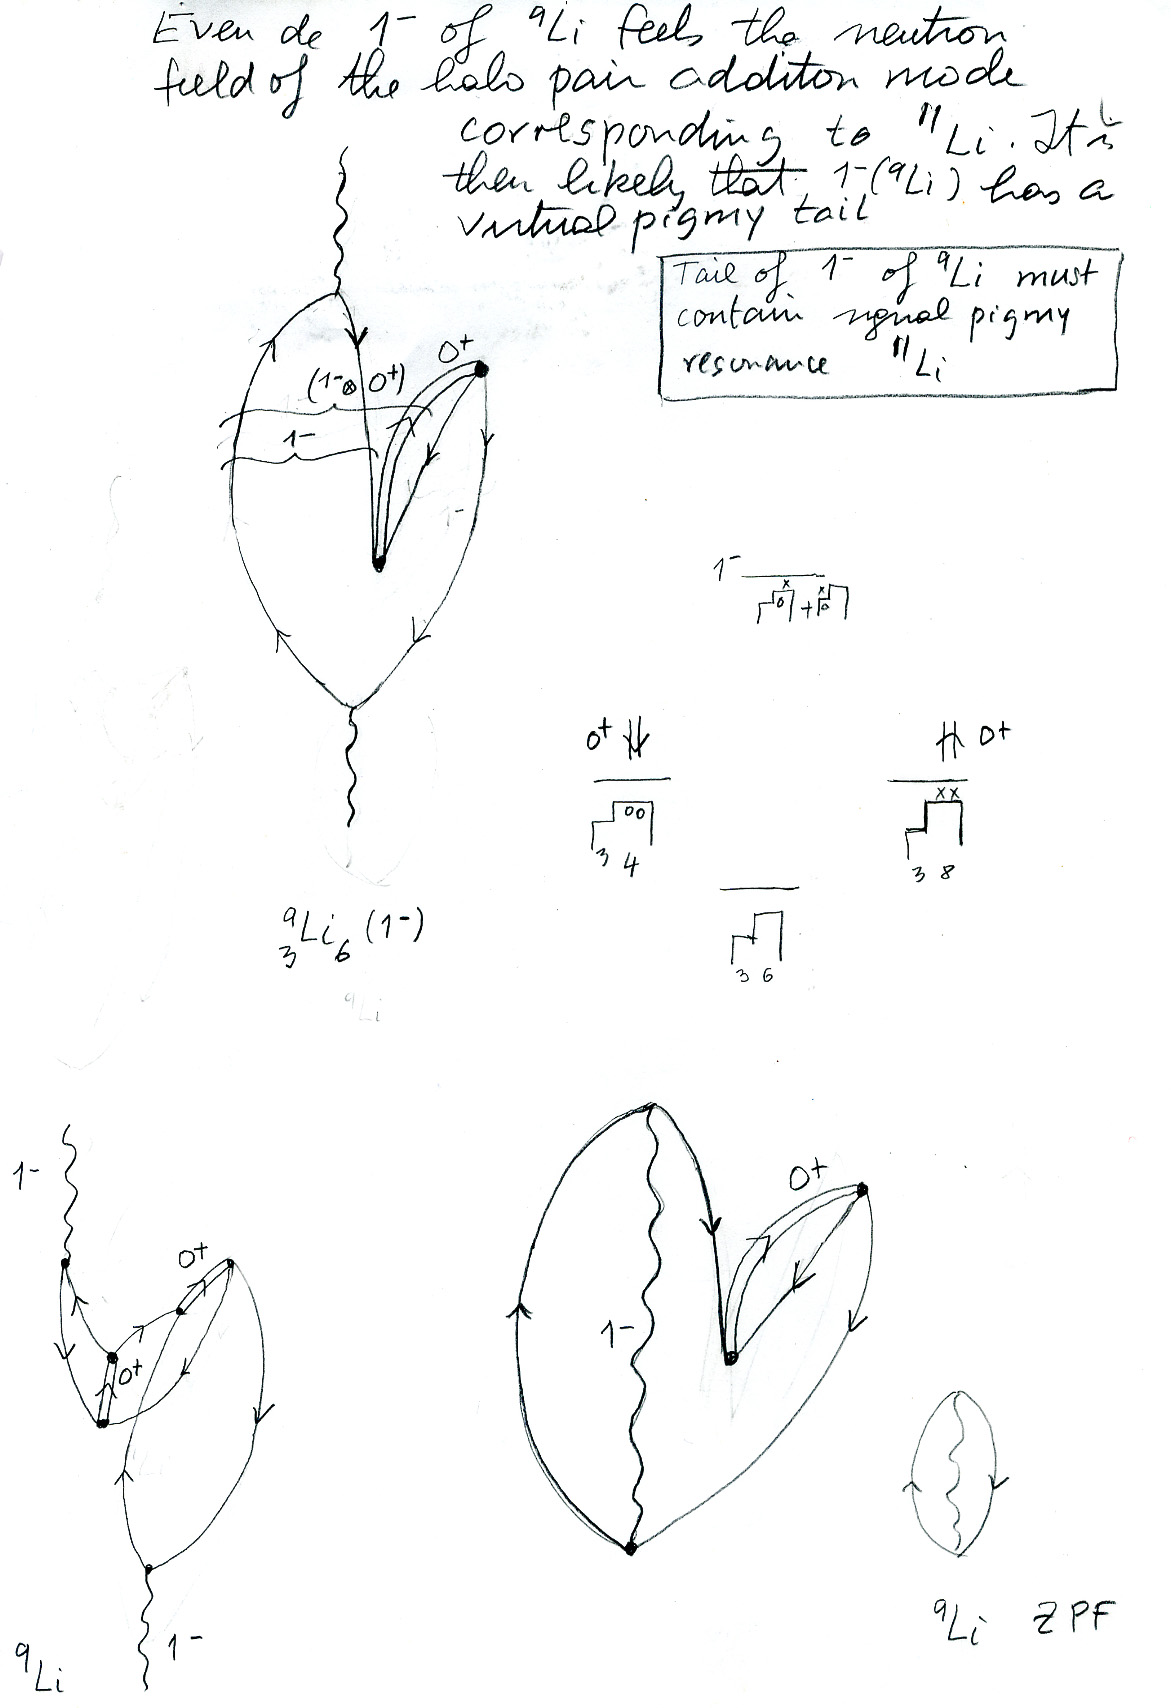 Even de 1⁻ of ⁹Li feels the neutron
field of the halo pair additon mode
corresponding to ¹¹Li. It is
then likely that 1⁻(⁹Li) has a
virtual pigmy tail
Tail of 1⁻ of ⁹Li must
contain signal pigmy
resonance ¹¹Li
0⁺
(1⁻⊗0⁺)
1⁻
1⁻
1⁻
x x
0 + 0
0⁺ 0⁺
00 xx
3 4 3 8
3 6
⁹₃Li₆ (1⁻)
⁹Li
1⁻
0⁺
0⁺
1⁻
⁹Li
0⁺
1⁻
⁹Li ZPF